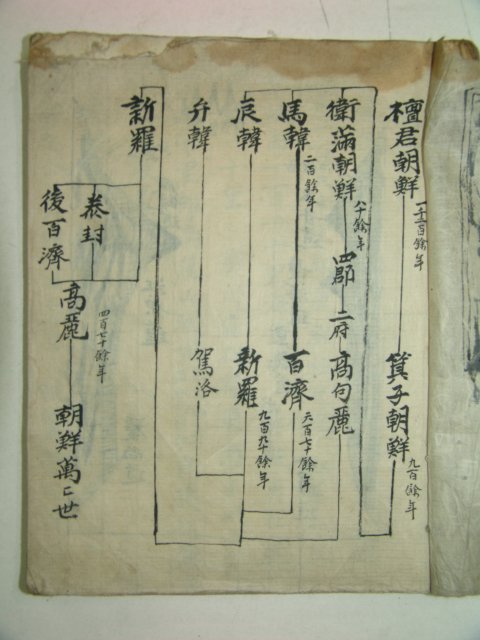 檀君朝鮮 一千二百餘年
箕子朝鮮 九百餘年
衛滿朝鮮 八十餘年
四郡 二府 高句麗
馬韓 二百餘年
百濟 六百七十餘年
辰韓
新羅 九百九十餘年
弁韓
駕洛
新羅
泰封
後百濟
高麗 四百七十餘年
朝鮮萬〻世